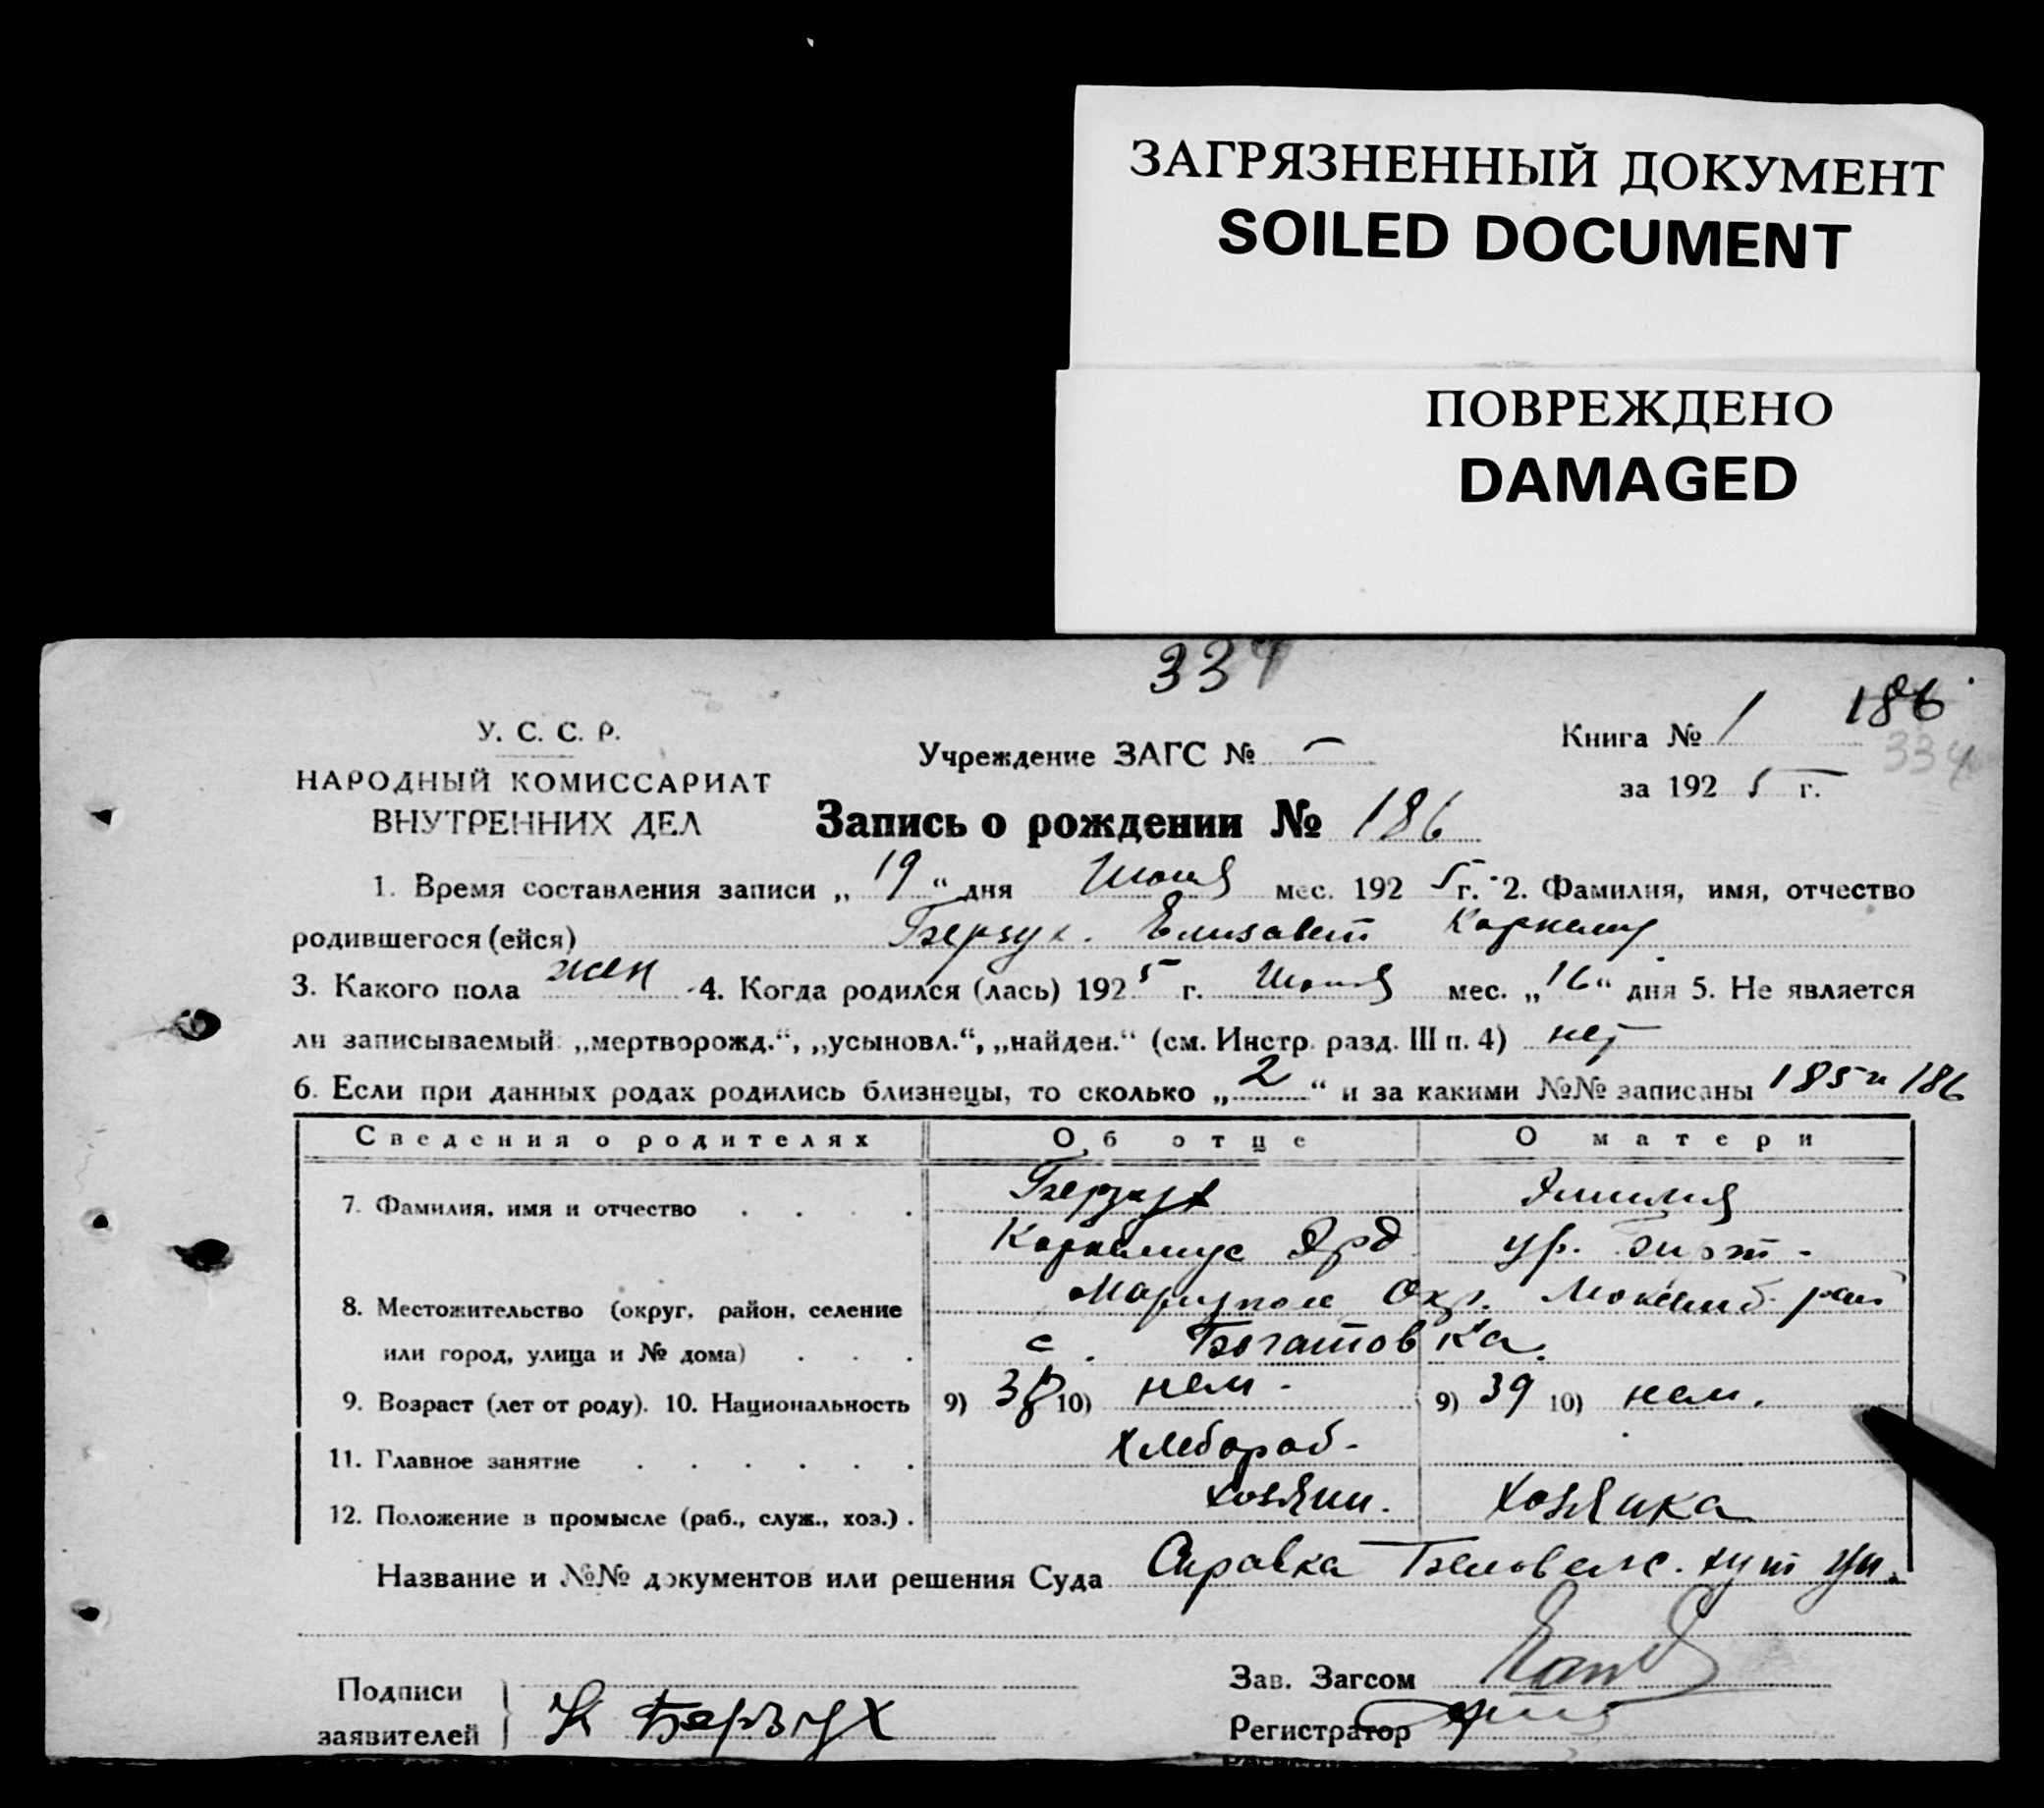 ЗАГРЯЗНЕННЫЙ ДОКУМЕНТ
SOILED DOCUMENT
ПОВРЕЖДЕНО
DAMAGED
334
186
У. С. С. Р.
Учреждение ЗАГС № —
Книга № 1
334
НАРОДНЫЙ КОМИССАРИАТ
за 1925 г.
ВНУТРЕННИХ ДЕЛ
Запись о рождении № 186
1. Время составления записи „19“ дня Июня мес. 1925 г. 2. Фамилия, имя, отчество
родившегося (ейся) Берзух. Елизавет
3. Какого пола жен 4. Когда родился (лась) 1925 г. Июня мес. „16“ дня 5. Не является
ли записываемый: „мертворожд.“, „усыновл.“, „найден.“ (см. Инстр. разд. III п. 4) нет
6. Если при данных родах родились близнецы, то сколько „2“ и за какими №№ записаны 185 и 186
Сведения о родителях Об отце О матери
7. Фамилия, имя и отчество Берзух Эмилия
Корнелиус ур.
8. Местожительство (округ, район, селение Мариупол Окр. рай
или город, улица и № дома) с. Богатовка.
9. Возраст (лет от роду). 10. Национальность 9) 38 10) нем. 9) 39 10) нем.
11. Главное занятие Хлебороб.
12. Положение в промысле (раб., служ., хоз.) хозяин. хозяйка
Название и №№ документов или решения Суда Справка
Зав. Загсом
Подписи
заявителей К Берзух
Регистратор